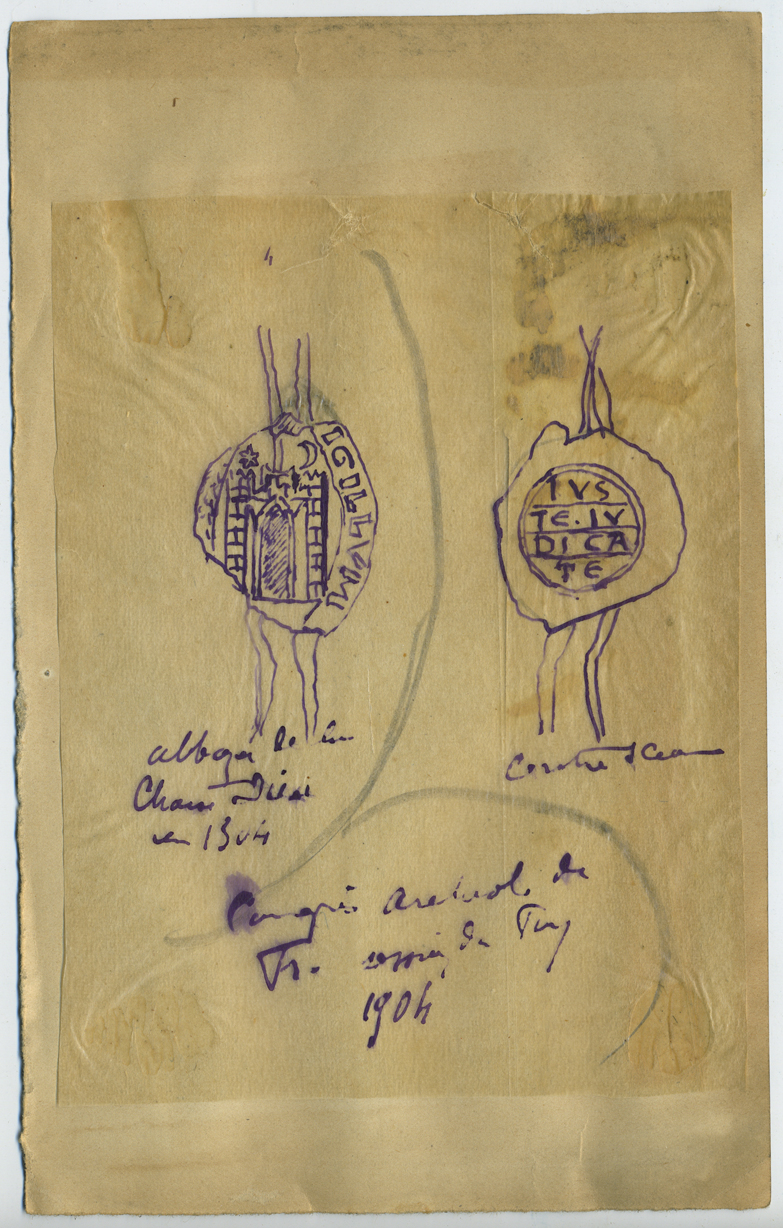 IGILLVM
IVS
TE.IV
DICA
TE
abbaye de la
Chaise Dieu
en 1304
Contre Sceau
Congrès Archéol. de
Fr. du Puy
1904